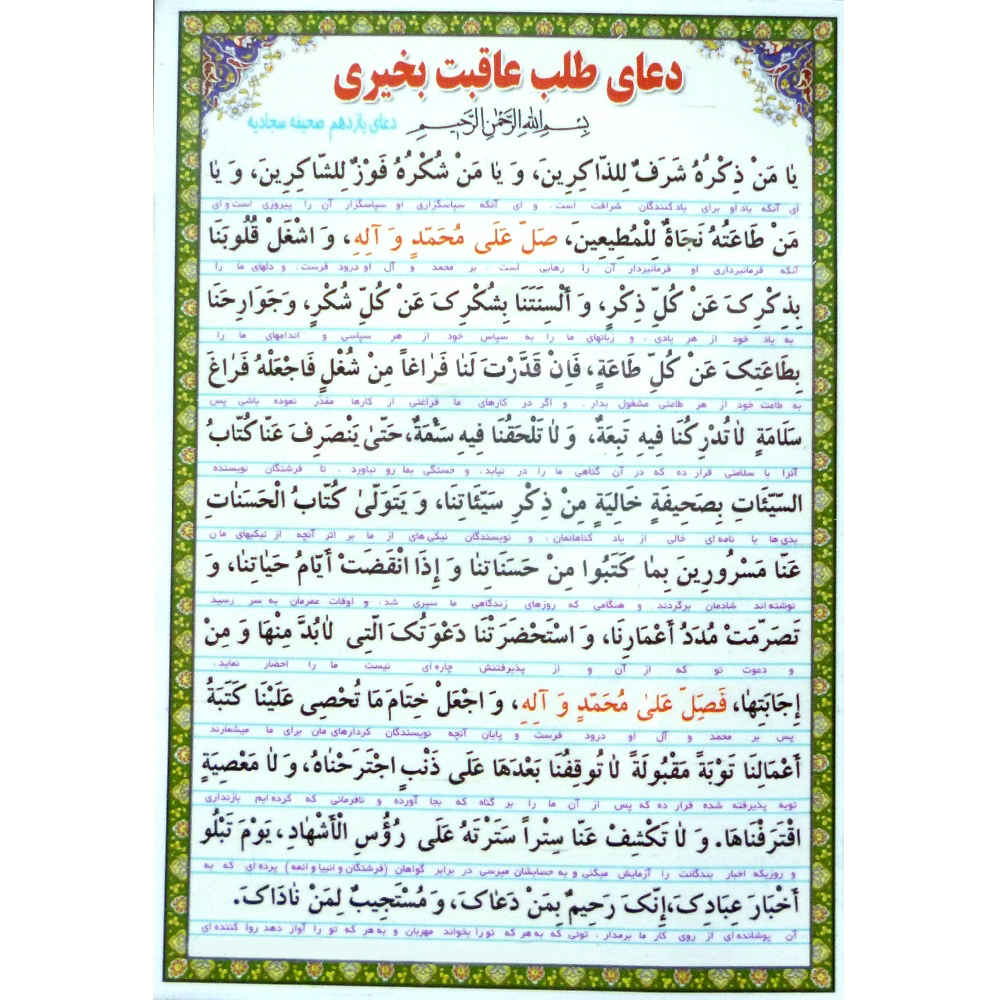 دعای طلب عاقبت بخیری
بِسْمِ اللهِ الرَّحْمٰنِ الرَّحیمِ
دعای یازدهم صحیفه سجادیه
یٰا مَنْ ذِکْرُهُ شَرَفٌ لِلذّاکِرِینَ، وَ یٰا مَنْ شُکْرُهُ فَوْزٌ لِلشّاکِرِینَ، وَ یٰا
ای آنکه یاد او برای یادکنندگان شرافت است. و ای آنکه سپاسگزاری او سپاسگزار آن را پیروزی است و ای
مَنْ طٰاعَتُهُ نَجٰاةٌ لِلْمُطِیعِینَ، صَلِّ عَلَی مُحَمَّدٍ وَ آلِهِ، وَ اشْغَلْ قُلُوبَنَا
آنکه فرمانبرداری او فرمانبردار آن را رهایی است. بر محمد و آل او درود فرست. و دلهای ما را
بِذِکْرِکَ عَنْ کُلِّ ذِکْرٍ، وَ أَلْسِنَتَنَا بِشُکْرِکَ عَنْ کُلِّ شُکْرٍ، وَ جَوَارِحَنَا
به یاد خود از هر یادی. و زبانهای ما را به سپاس خود از هر سپاسی و اندامهای ما را
بِطَاعَتِکَ عَنْ کُلِّ طَاعَةٍ، فَاِنْ قَدَّرْتَ لَنٰا فَرٰاغاً مِنْ شُغْلٍ فَاجْعَلْهُ فَرٰاغَ
به طاعت خود از هر طاعتی مشغول بدار. و اگر در کارهای ما فراغتی از کارها مقدر نموده باشی پس
سَلَامَةٍ لٰا تُدْرِکُنَا فِیهِ تَبِعَةٌ، وَ لٰا تَلْحَقُنَا فِیهِ سَئْمَةٌ، حَتّیٰ یَنْصَرِفَ عَنّا کُتّابُ
آنرا با سلامتی قرار ده که در آن گناهی ما را در نیابد. و خستگی بما رو نیاورد. تا فرشتگان نویسنده
السَّیِّئَاتِ بِصَحِیفَةٍ خَالِیَةٍ مِنْ ذِکْرِ سَیِّئَاتِنَا، وَ یَتَوَلّیٰ کُتّابُ الْحَسَنٰاتِ
بدی ها با نامه ای خالی از یاد گناهانمان. و نویسندگان نیکی های از ما بر اثر آنچه از نیکیهای ما
عَنّا مَسْرُورِینَ بِمٰا کَتَبُوا مِنْ حَسَنَاتِنٰا وَ إِذَا انْقَضَتْ أَیّامُ حَیٰاتِنٰا، وَ
نوشته اند شادمان برگردند و هنگامی که روزهای زندگانی ما سپری شد. و اوقات عمرمان به سر رسید
تَصَرَّمَتْ مُدَدُ أَعْمَارِنَا، وَ اسْتَحْضَرَتْنَا دَعْوَتُکَ الَّتِی لٰابُدَّ مِنْهَا وَ مِنْ
و دعوت تو که از آن و از پذیرفتنش چاره ای نیست ما را احضار نماید.
إِجَابَتِهٰا، فَصَلِّ عَلیٰ مُحَمَّدٍ وَ آلِهِ، وَ اجْعَلْ خِتَامَ مَا تُحْصِی عَلَیْنَا کَتَبَةُ
پس بر محمد و آل او درود فرست و پایان آنچه نویسندگان کردارهای مان برای ما میشمارند
أَعْمَالِنَا تَوْبَةً مَقْبُولَةً لٰا تُوقِفُنَا بَعْدَهَا عَلَی ذَنْبٍ اجْتَرَحْنَاهُ، وَ لٰا مَعْصِیَةٍ
توبه پذیرفته شده قرار ده که پس از آن ما را بر گناه که بجا آورده و نافرمانی که کرده ایم بازنداری
اقْتَرَفْنَاهَا. وَ لٰا تَکْشِفْ عَنّا سِتْراً سَتَرْتَهُ عَلَی رُؤُسِ الْأَشْهَادِ، یَوْمَ تَبْلُو
و روزیکه اخبار بندگانت را آزمایش میکنی و به حسابشان میرسی در برابر گواهان (فرشتگان و انبیا و ائمه) پرده ای که به
أَخْبَارَ عِبَادِکَ، إِنَّکَ رَحِیمٌ بِمَنْ دَعٰاکَ، وَ مُسْتَجِیبٌ لِمَنْ نٰادَاکَ.
آن پوشانده ای از روی کار ما برمدار. توئی که به هر که تو را بخواند مهربان و به هر که تو را آواز دهد روا کننده ای